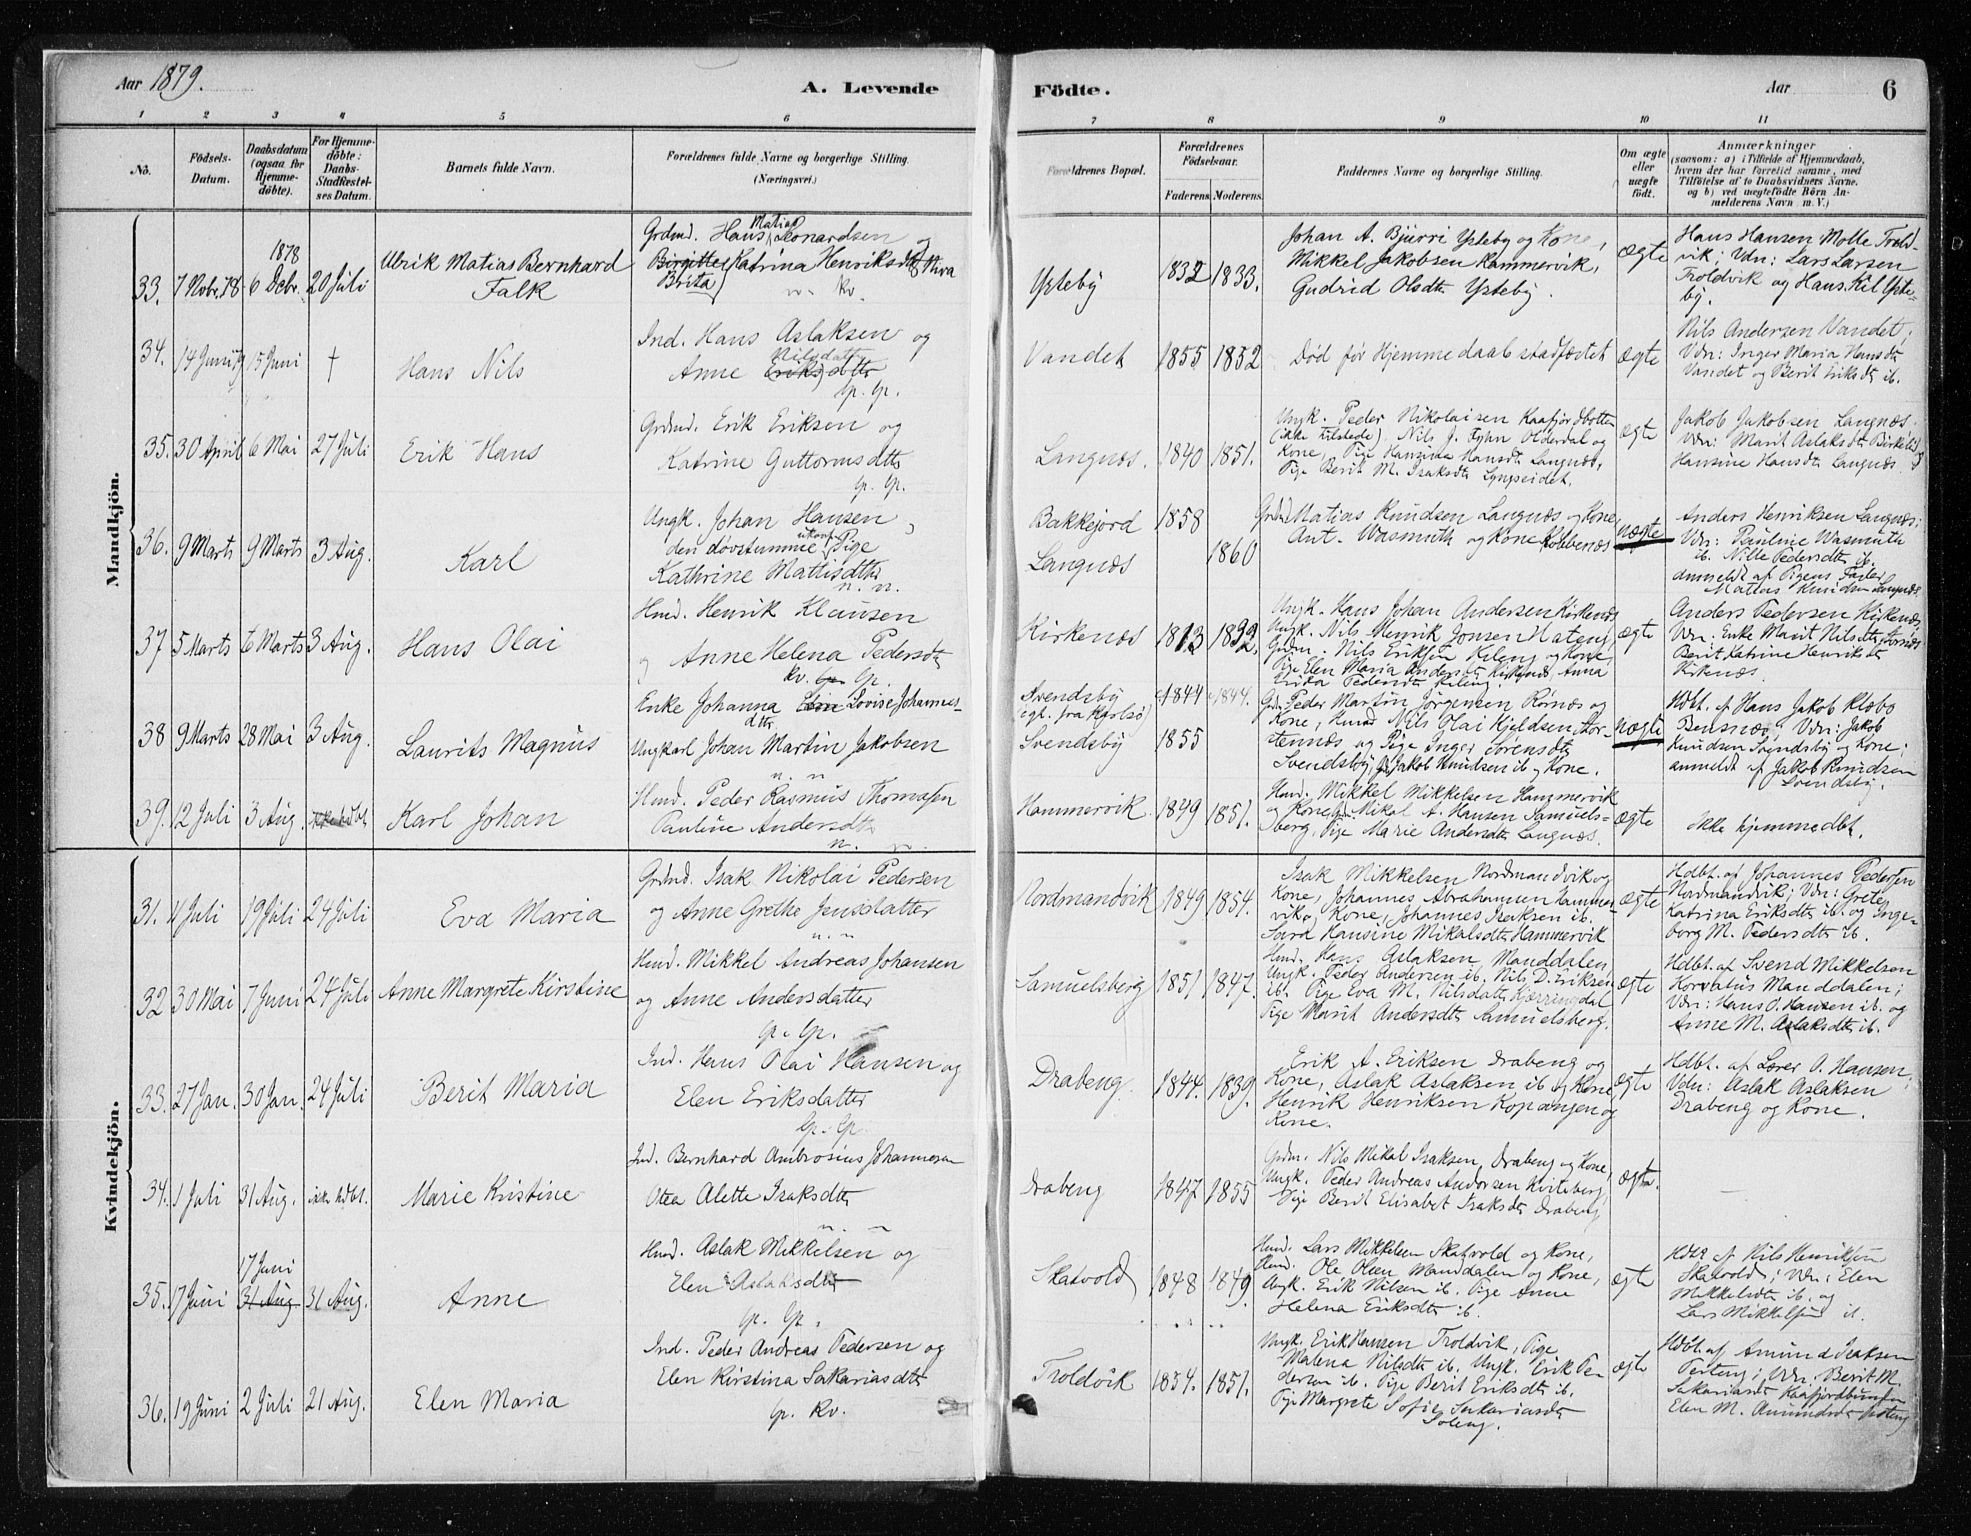 Aar 1879.
A. Levende
Födte.
Aar
6
1 2 3 4 5 6 7 8 9 10 11
No.
Födsels-
Datum.
Daabsdatum
(ogsaa for
Hjemme-
döbte).
For Hjemme-
döbte:
Daabs-
Stadfæstel-
ses Datum.
Barnets fulde Navn.
Forældrenes fulde Navne og borgerlige Stilling.
(Næringsvei.)
Forældrenes Bopæl.
Forældrenes
Födselsaar.
Faderens. Moderens.
Faddernes Navne og borgerlige Stilling.
Om ægte
eller
uægte
födt.
Anmærkninger
(saasom: a) i Tilfælde af Hjemmedaab,
hvem der har forrettet samme, med
Tilföielse af to Daabsvidners Navne.
og b) ved uægtefödte Börn An-
melderens Navn m. V.)
Mandkjön.
33. 7 Nobr. 78 1878 6 Debr. 20 Juli
Ulrik Matias Bernhard
Falk
Grdmd. Hans Matias Leonardsen og
Birgitte Katrina Henriksdtr
Brita
n. kv.
Ysteby 1832 1833.
Johan A. Bjurri Ysteby og Kone,
Mikkel Jakobsen Kammervik,
Gudrid Olsdtr Ysteby.
ægte
Hans Hansen Molle Trold-
vik; Vdn: Lars Larsen
Troldvik og Hans Kil Yste-
by.
34. 14 Juni 79 15 Juni †
Hans Nils
Ind. Hans Aslaksen og
Anne Eriksdtr Nilsdatt
lp. lp.
Vandet 1855 1852
Død før Hjemmedaab stadfæstet
ægte
Nils Andersen Vandet;
Vdn: Inger Maria Hansdtr
Vandet og Berit Eriksdtr ib.
35. 30 April 6 Mai 27 Juli
Erik Hans
Grdmd. Erik Eriksen og
Katrine Guttormsdtr
lp. lp.
Langnæs. 1840 1851.
Ungk. Peder Nikolaisen Kaafjordbotten
(ikke tilstede), Nils J. Fjan Olderdal og
Kone, Pige Hansina Hansdtr Langnæs,
Pige Berit M. Isaksdtr Lyngseidet.
ægte
Jakob Jakobsen Langnæs.
Vdn: Marit Aslaksdtr
Hansine Hansdtr Langnæs.
36. 9 Marts 9 Marts 3 Aug.
Karl
Ungk. Johan Hansen,
den døvstumme ukonf. Pige
Kathrine Mattisdtr
n. n.
Bakkejord 1858
Langnæs 1860
Grdmd Matias Knudsen Langnæs og Kone,
Ant. Wasmuth og Kone Kobbenæs
uægte
Anders Henriksen Langnæs;
Vdn: Pauline Wasmuth
ib. Nille Pedersdtr ib.
anmeldt af Pigens Fader
Mattias Knudsen Langnæs.
37 5 Marts 6 Marts 3 Aug.
Hans Olai
Hmd. Henrik Klausen
og Anne Helena Pedersdtr
kv. lp. lp.
Kirkenæs 1813 1832.
Ungk. Hans Johan Andersen Kirkenæs
Ungk. Nils Henrik Jonsen Nateng,
Grdm. Nils Eriksen Kileng og Kone,
Pige Elen Maria Andersdt Kirkenæs, Anna
Erika Pedersdt Kileng.
ægte
Anders Pedersen Kirkenæs,
Vdn: Enke Marit Nilsdtr Stornæs
Berit Katrine Henriksdtr
Kirkenæs.
38 9 Marts 28 Mai 3 Aug.
Laurits Magnus
Enke Johanna Lovise Johannes-
dtr
Ungkarl Johan Martin Jakobsen
n. n
Svendsby 1844 1844.
Svendsby 1855
Gd. Peder Martin Jørgensen Rørnæs og
Kone, Hmd Nils Olai Kjeldsen Stor-
stennæs og Pige Inger Sørensdtr
Svendsby, Jakob Knudsen ib og Kone.
uægte
Hdbt. af Hans Jakob Klæbo
Bensnæs, Vdn: Jakob
Knudsen Svendsby og Kone;
anmeldt af Jakob Knudsen
Svendsby.
39. 12 Juli 3 Aug. ikke hdbt.
Karl Johan
Hmd. Peder Rasmus Thomasen
Pauline Andersdtr
n. n.
Hammervik. 1849 1851.
Hmd. Mikkel Mikkelsen Hammervik
og Kone, Mikal A. Hansen Samuels-
berg. Pige Marie Andersdtr Langnæs.
ægte
Ikke hjemmedbt.
Kvindekjön.
31. 11 Juli 19 Juli 24 Juli
Eva Maria
Grdmd. Isak Nikolai Pedersen
og Anne Grethe Jensdatter
n. n
Nordmandvik 1849 1854.
Isak Mikkelsen Nordmandvik og
Kone, Johannes Abrahamsen Hammer-
vik og Kone, Johannes Isaksen ib.
Sara Hansine Mikalsdtr Hammervik
ægte
Hdbt. af Johannes Pedersen
Nordmandvik; Vdn: Grete
Katrina Eriksdtr ib. og Inge-
borg M. Pedersdtr ib.
32 30 Mai 7 Juni 24 Juli
Anne Margrete Kirstine
Hmd. Mikkel Andreas Johansen
og Anne Andersdatter
lp. lp.
Samuelsberg 1851 1847.
Hmd. Hans Aslaksen Manddalen,
Ungk. Peder Andersen ib. Nils D. Eriksen
ib. Pige Eva M. Nilsdatter Kjærringdal
Pige Marit Andersdtr Samuelsberg.
ægte
Hdbt. af Svend Mikkelsen
Horvatus Manddalen;
Vdn: Hans O. Hansen ib. og
Anne M. Aslaksdtr ib.
33. 27 Jan. 30 Jan. 24 Juli
Berit Maria
Ind. Hans Olai Hansen og
Elen Eriksdatter
lp. lp.
Drabeng. 1844. 1839.
Erik A. Eriksen Drabeng og
Kone, Aslak Aslaksen ib og Kone,
Henrik Henriksen Kopangen og
Kone.
ægte
Hdbt. af Lærer O. Hansen;
Vdn: Aslak Aslaksen
Drabeng og Kone.
34. 1 Juli 31 Aug. ikke hdbt.
Marie Kristine
Ind. Bernhard Ambrosius Johannesen
Otea Alette Isaksdtr
n. n
Drabeng 1847 1855
Grdm. Nils Mikal Isaksen, Drabeng og Kone,
Ungk. Peder Andreas Andersen Kviteberg,
Pige Berit Elisabet Isaksdtr Drabeng
ægte.
—
35. 17 Juni 17 Juni 31 Aug 31 Aug.
Anne
Hmd. Aslak Mikkelsen og
Elen Aslaksdtr
lp. lp.
Skatvold 1848 1849.
Hmd. Lars Mikkelsen Skatvold og Kone,
Hmd. Ole Olsen Manddalen og Kone,
Ungk. Erik Nilsen ib. Pige Anne
Helena Eriksdtr ib.
ægte
Hdbt af Nils Henriksen
Skatvold; Vdn: Elen
Mikkelsdtr ib. og
Lars Mikkelsen ib.
36. 19 Juni 2 Juli 21 Aug.
Elen Maria
Ind. Peder Andreas Pedersen og
Elen Kirstina Sakariasdtr
lp. kv.
Troldvik 1854. 1851.
Ungk. Erik Hansen Troldvik, Pige
Malena Nilsdtr ib. Ungk. Erik Pe-
dersen ib. Pige Berit Eriksdtr ib.
Pige Margrete Sofie Sakariasdtr
Soleng.
ægte
Hdbt. af Amund Isaksen
Vdn. Berit M.
Sakariasdt Kaafjordbunden
Elen M. Amundsdt